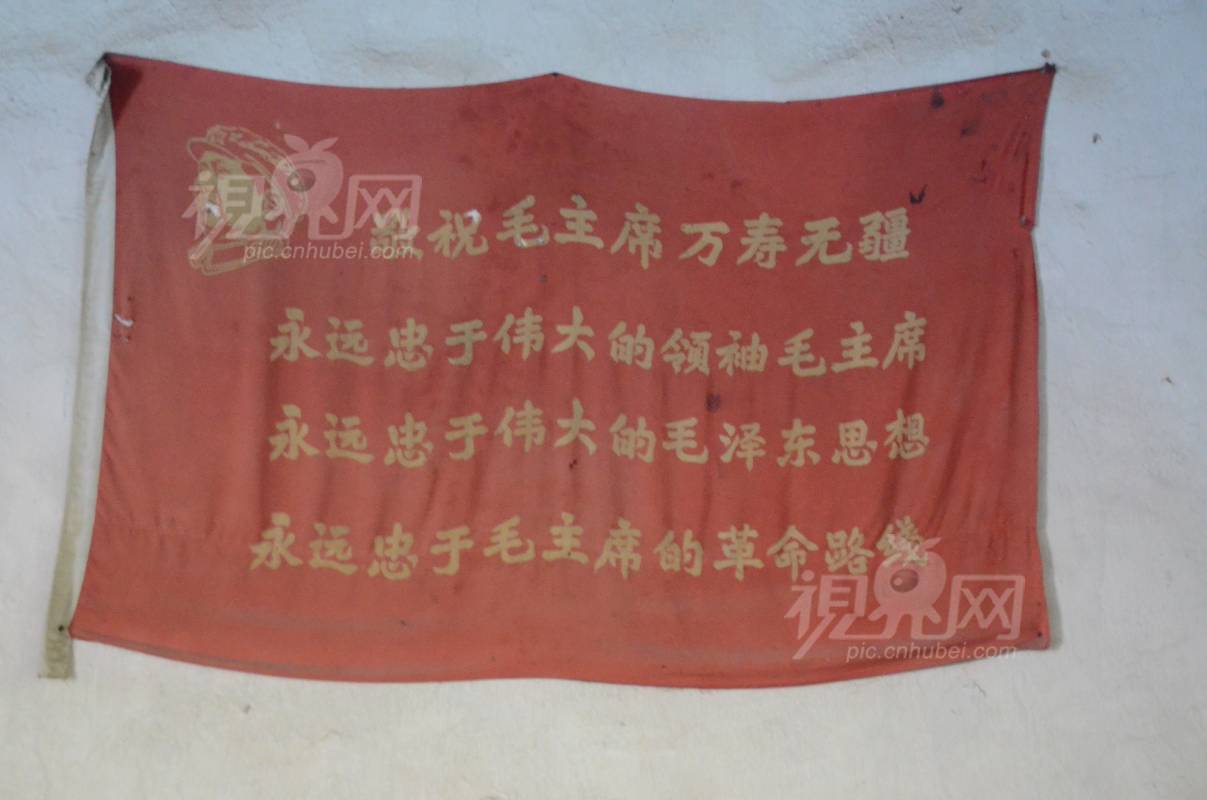 视界网
pic.cnhubei.com
祝毛主席万寿无疆
永远忠于伟大的领袖毛主席
永远忠于伟大的毛泽东思想
永远忠于毛主席的革命路线
视界网
pic.cnhubei.com